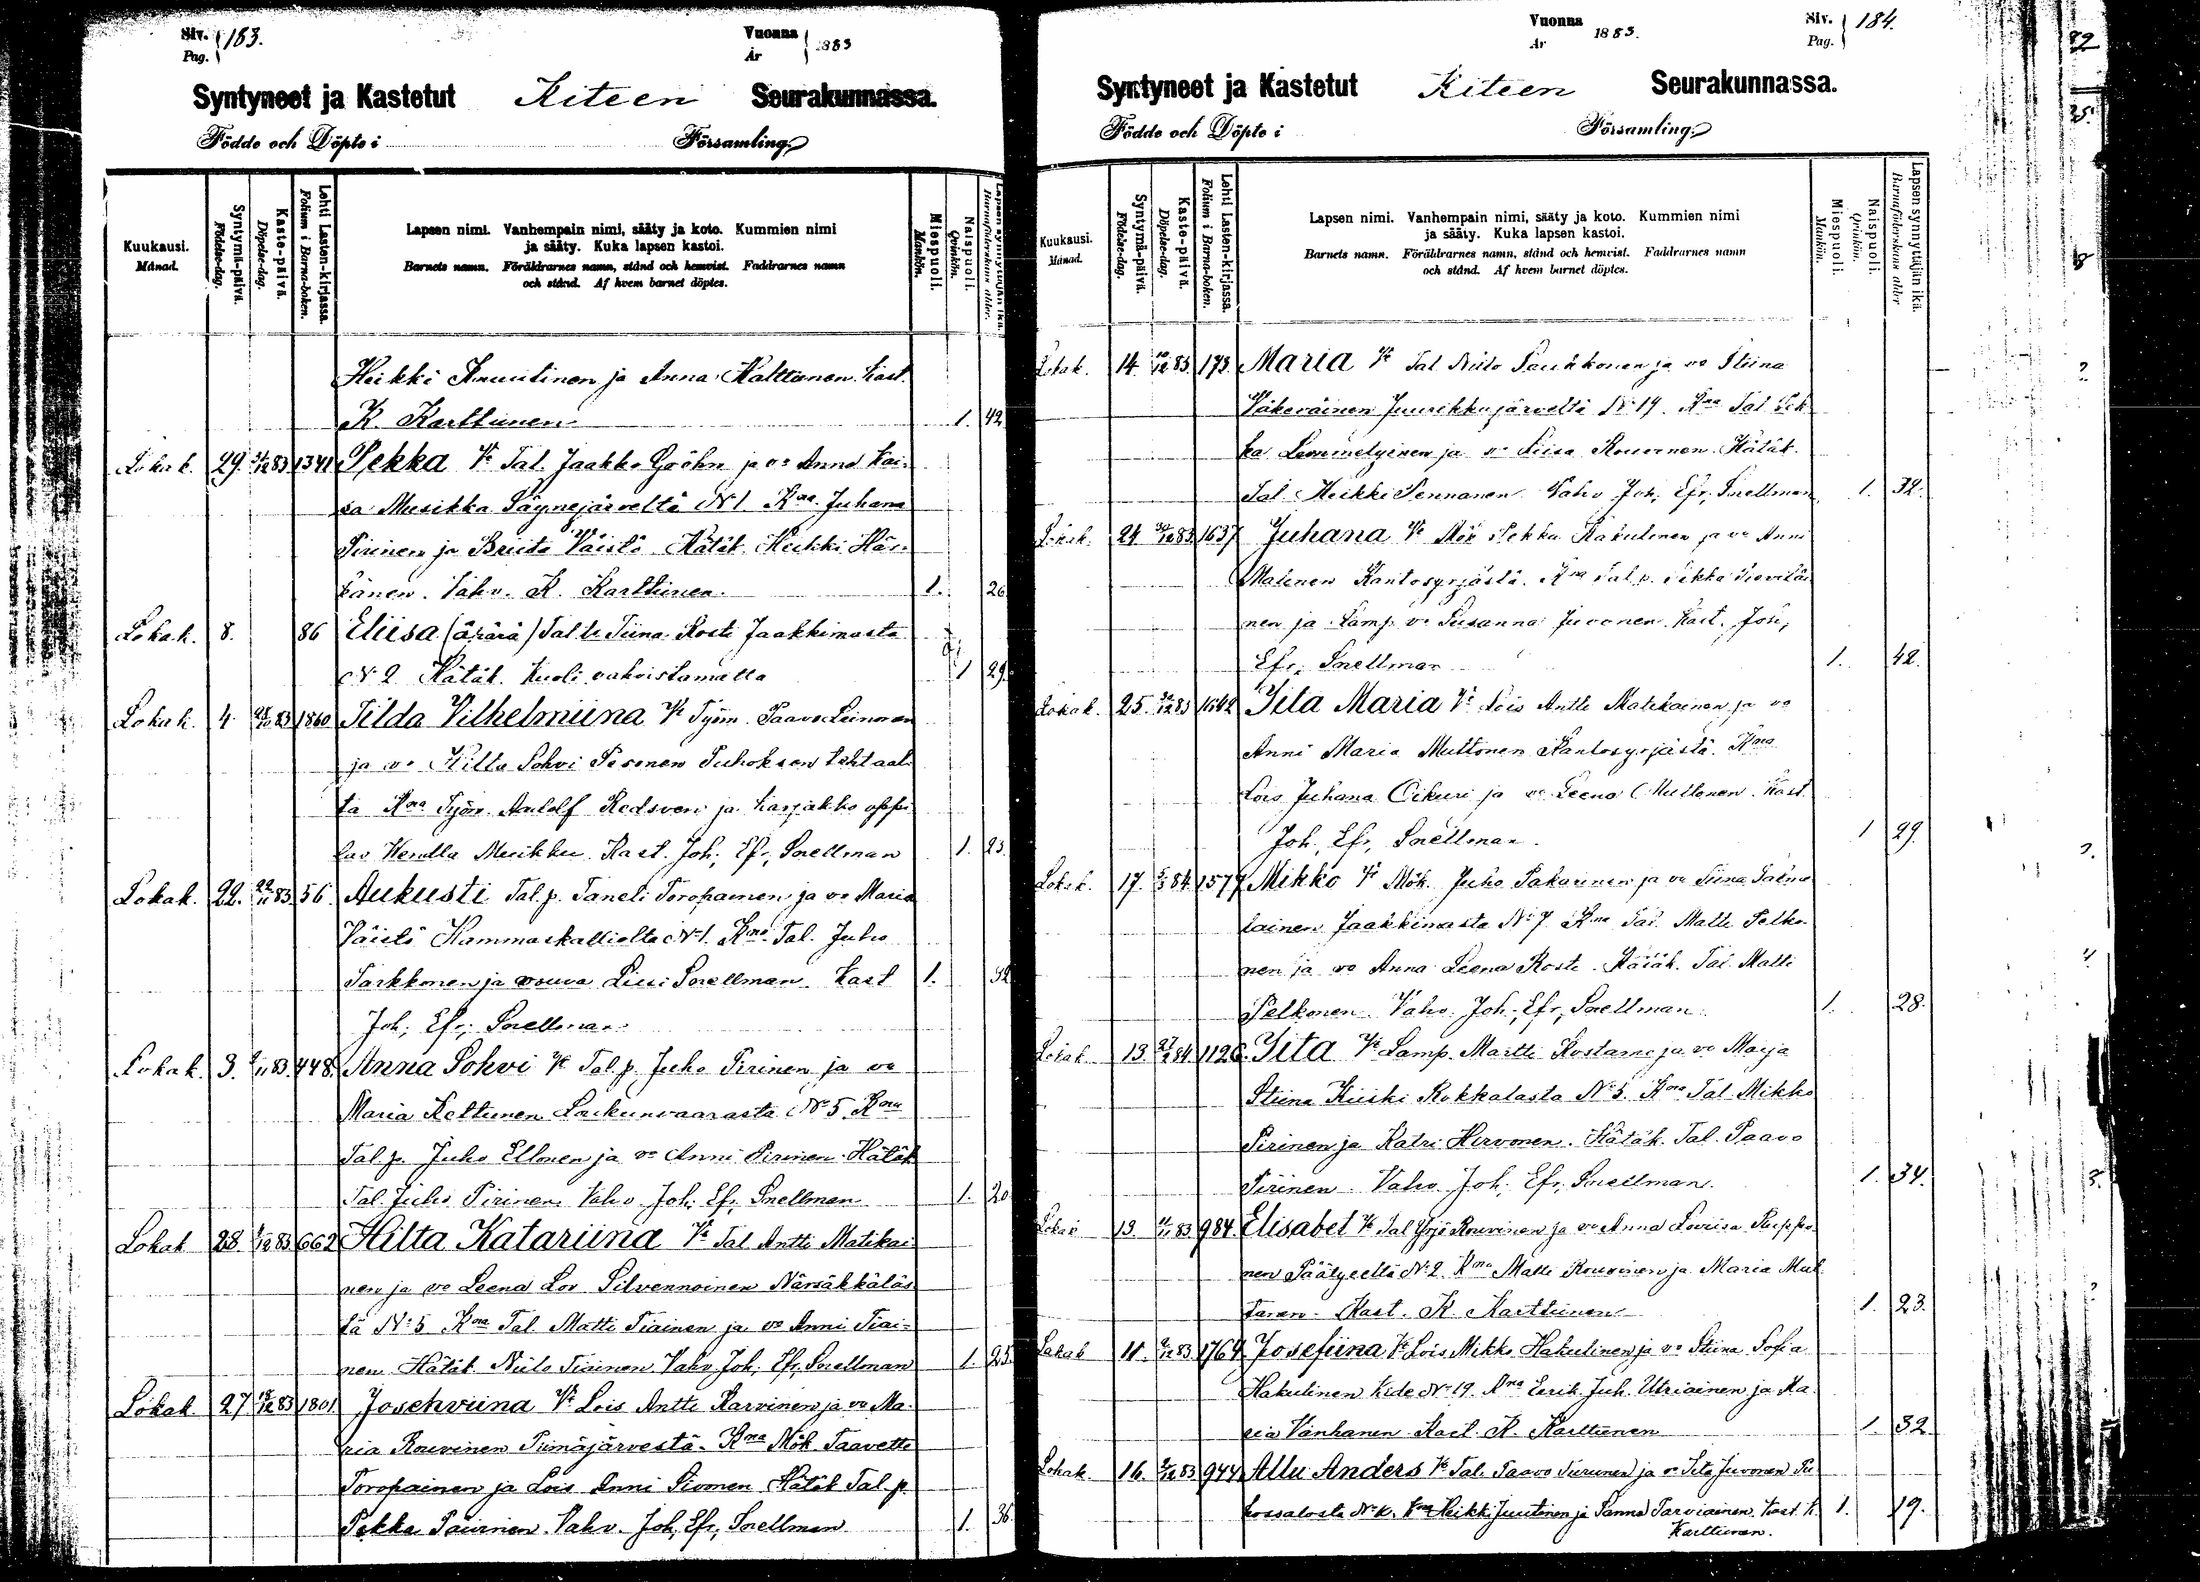 Siv. Pag. 183.
Vuonna År 1883
Syntyneet ja Kastetut Kiteen Seurakunnassa.
Födde och Döpte i Församling.
Kuukausi. Månad.
Syntymä-päivä. Födelse-dag.
Kaste-päivä. Döpelse-dag.
Lehti Lasten-kirjassa. Folium i Barna-boken.
Lapsen nimi. Vanhempain nimi, sääty ja koto. Kummien nimi
ja sääty. Kuka lapsen kastoi.
Barnets namn. Föräldrarnes namn, stånd och hemvist. Faddrarnes namn
och stånd. Af hvem barnet döptes.
Miespuoli. Mankön.
Naispuoli. Qvinkön.
Lapsen synnyttäjän ikä. Barnaföderskans ålder.
Heikki Knuutinen ja Anna Malttanen Kast.
K. Karttunen 1. 42
Lokak. 29. 83 1341 Pekka Tal. Jaakko Gröhn ja vo Anna Kai-
sa Musikka Säynejärveltä N:1. Kna. Juhana
Pirinen ja Briita Väistö Hätäk. Heikki Här-
känen. Vahv. K. Karttunen. 1. 26
Lokak. 8. 86 Eliisa (äpärä) Tal. tr Tiina Kosti Jaakkimasta
N:2 Hätäk. Kuoli vahvistamatta 1 29.
Lokak. 4. 83 1860 Tilda Vilhelmiina Työm. Paavo Leinonen
ja vo Hilta Sohvi Pesonen Puhoksen tehtaal-
ta Kna Työm. Adolf Redsven ja karjakko
Hendla Musikka. Kast. Joh. Efr. Snellman 1. 23.
Lokak. 22. 22/11 83 56. Aukusti Tal. p. Taneli Toropainen ja vo Maria
Väistö Hammaskalliolta N:1. Kna Tal. Juho
Tarkkonen ja rouva Liisi Snellman. Kast 1. 32
Joh. Efr. Snellman.
Lokak. 3. 83. 448. Anna Sohvi Tal. p. Juho Pirinen ja vo
Maria Kettunen Laukunvaarasta N:o 5 Kna
Tal. p. Juho Ellonen ja vo Anni Pirinen. Hätäk
Tal. Juho Pirinen Vahv. Joh. Efr. Snellman 1. 20
Lokak 28. 83 662 Hilta Katariina Tal. Antti Matikai-
nen ja vo Leena Lov. Silvennoinen Närsäkkäläs-
tä N:o 5 Kna Tal. Matti Tiainen ja vo Anni Tiai-
nen Hätäk. Niilo Tiainen Vahv. Joh. Efr. Snellman 1. 25.
Lokak 27 18/12 83 1801 Josehviina Lois Antti Karvinen ja vo Ma-
ria Rouvinen Piimäjärvestä. Kna Mök. Taavetti
Toropainen ja Lois Anni Sivonen Hätäk Tal. p.
Pekka Vahv. Joh. Efr. Snellman 1. 36
Vuonna År 1883.
Siv. Pag. 184.
Syntyneet ja Kastetut Kiteen Seurakunnassa.
Födde och Döpte i Församling.
Kuukausi. Månad.
Syntymä-päivä. Födelse-dag.
Kaste-päivä. Döpelse-dag.
Lehti Lasten-kirjassa. Folium i Barna-boken.
Lapsen nimi. Vanhempain nimi, sääty ja koto. Kummien nimi
ja sääty. Kuka lapsen kastoi.
Barnets namn. Föräldrarnes namn, stånd och hemvist. Faddrarnes namn
och stånd. Af hvem barnet döptes.
Miespuoli. Mankön.
Naispuoli. Qvinkön.
Lapsen synnyttäjän ikä. Barnaföderskans ålder
Lokak. 14. 83. 173. Maria Tal. Niilo Paukkonen ja vo Stiina
Väkeväinen Juurikkajärveltä N:19. Kna Tal. Pek-
ka Lemmetyinen ja vo Liisa Rouvinen. Hätäk.
Tal. Heikki Pennanen Vahv. Joh. Efr. Snellman 1. 32.
Lokak. 24. 83. 1637 Juhana Mök. Pekka Hakulinen ja vo Anni
Malinen Kantosyrjästä. Kna Tal. p. Pekka
nen ja Lamp. vo Susanna Juvonen Kast. Joh.
Efr. Snellman 1. 42.
Lokak. 25. 83 1642 Iita Maria Lois Antti Matikainen ja vo
Anni Maria Muttonen Kantosyrjästä. Kna
Lois Juhana Oikuri ja vo Leena Muttonen. Kast
Joh. Efr. Snellman. 1 29.
Lokak. 17. 84. 1577 Mikko Mök. Juho Pakarinen ja vo Tiina
lainen Jaakkimasta N:7. Kna Tal. Matti Pelko-
nen ja vo Anna Leena Kosti. Hätäk. Tal. Matti
Pelkonen. Vahv. Joh. Efr. Snellman. 1. 28.
Lokak. 13. 84. 1126. Iita Lamp. Martti Kostamo ja vo Marja
Stiina Kiiski Rokkalasta N:o 5. Kna Tal. Mikko
Pirinen ja Katri Hirvonen. Hätäk. Tal. Paavo
Pirinen. Vahv. Joh. Efr. Snellman. 1. 34.
Lokak 13. 83. 984. Elisabet Tal. Yrjö Rouvinen ja vo Anna Loviisa Puppo-
nen Päätyeeltä N:2. Kna Matti Rouvinen ja Maria Mut-
tanen. Kast. K. Karttunen. 1. 23.
Lokak 11. 83. 1764 Josefiina Lois Mikko Hakulinen ja vo Stiina Sofia
Hakulinen Kide N:o 19. Kna Eerik Juh. Utriainen ja Ma-
ria Vänhanen Kast. K. Karttunen 1. 32.
Lokak. 16. 83 944 Allu Anders Tal. Paavo Turunen ja vo Iita Juvonen Pu-
hossalosta N:10. Kna Heikki Juutinen ja Sanna Tarviainen Kast. K. 1. 19.
Karttunen.